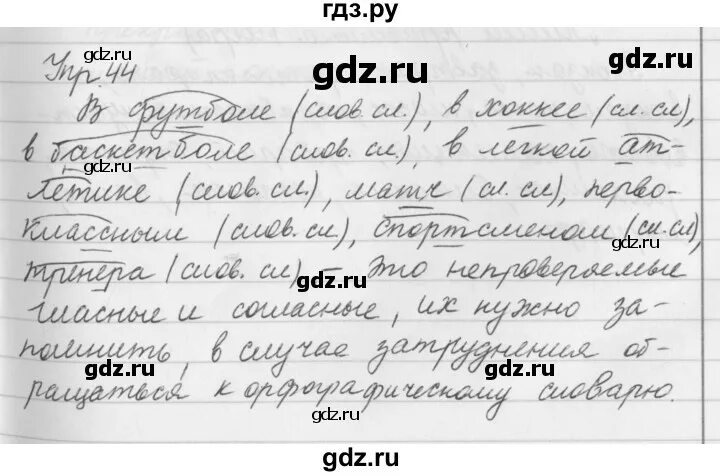 гдз.ру
Упр. 44
В футболе (слов. сл.), в хоккее (сл. сл),
в баскетболе (слов. сл.), в лёгкой ат-
летике (слов. сл.), матч (сл. сл), перво-
классным (слов. сл), спортсменом (сл. сл),
тренера (слов. сл) – это непроверяемые
гласные и согласные, их нужно за-
помнить, в случае затруднения об-
ращаться к орфографическому словарю.
gdz.ru
gdz.ru
gdz.ru
gdz.ru
gdz.ru
gdz.ru
gdz.ru
gdz.ru
gdz.ru
gdz.ru
gdz.ru
gdz.ru
gdz.ru
gdz.ru